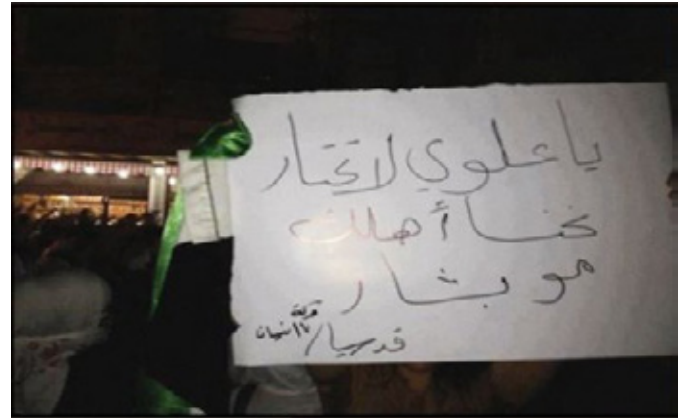 يا علوي لا تحتار
نحنا أهلك
مو بشار
قدسيا/